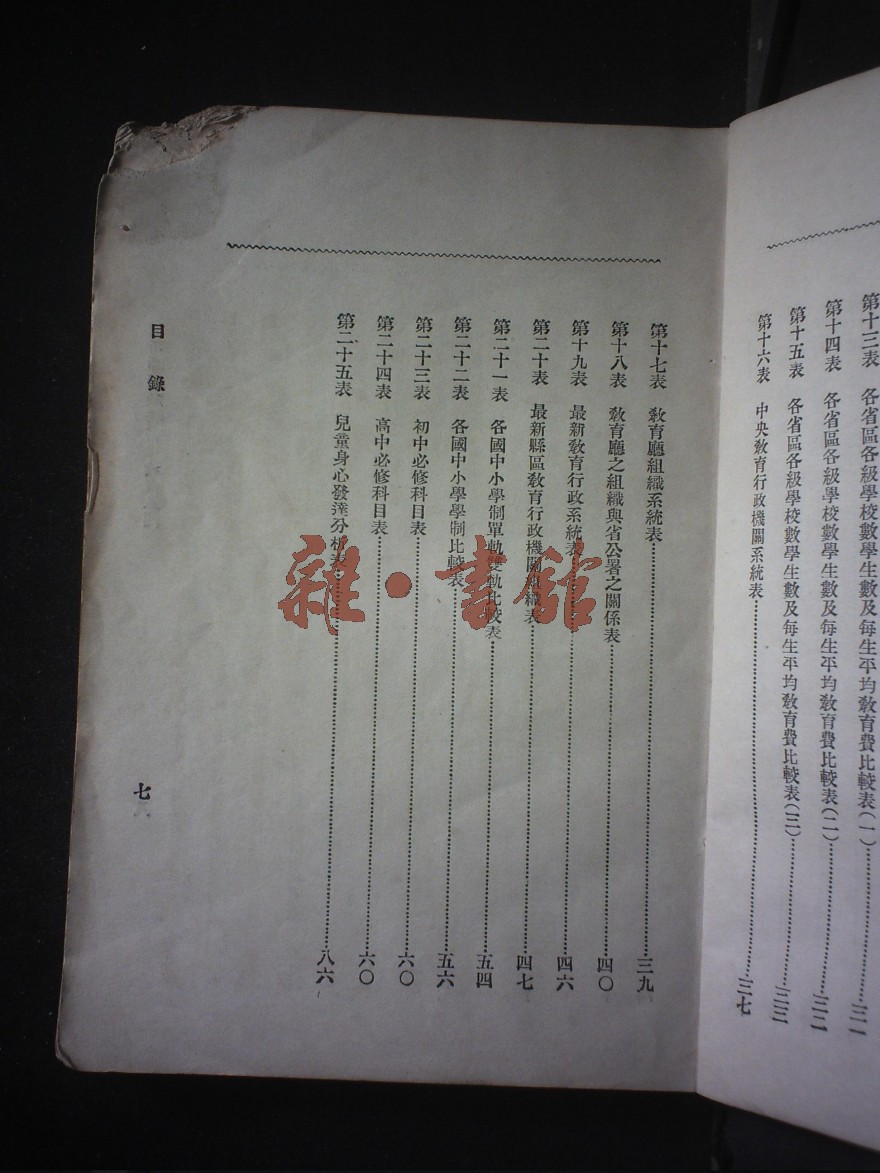 第十三表 各省區各級學校數學生數及每生平均教育費比較表(一)……三一
第十四表 各省區各級學校數學生數及每生平均教育費比較表(二)……三二
第十五表 各省區各級學校數學生數及每生平均教育費比較表(三)……三三
第十六表 中央教育行政機關系統表……三七
第十七表 教育廳組織系統表……三九
第十八表 教育廳之組織與省公署之關係表……四〇
第十九表 最新教育行政系統表……四六
第二十表 最新縣區教育行政機關組織表……四七
第二十一表 各國中小學制單軌雙軌比較表……五四
第二十二表 各國中小學學制比較表……五六
第二十三表 初中必修科目表……六〇
第二十四表 高中必修科目表……六〇
第二十五表 兒童身心發達分析表……八六
目錄
七
雜·書館